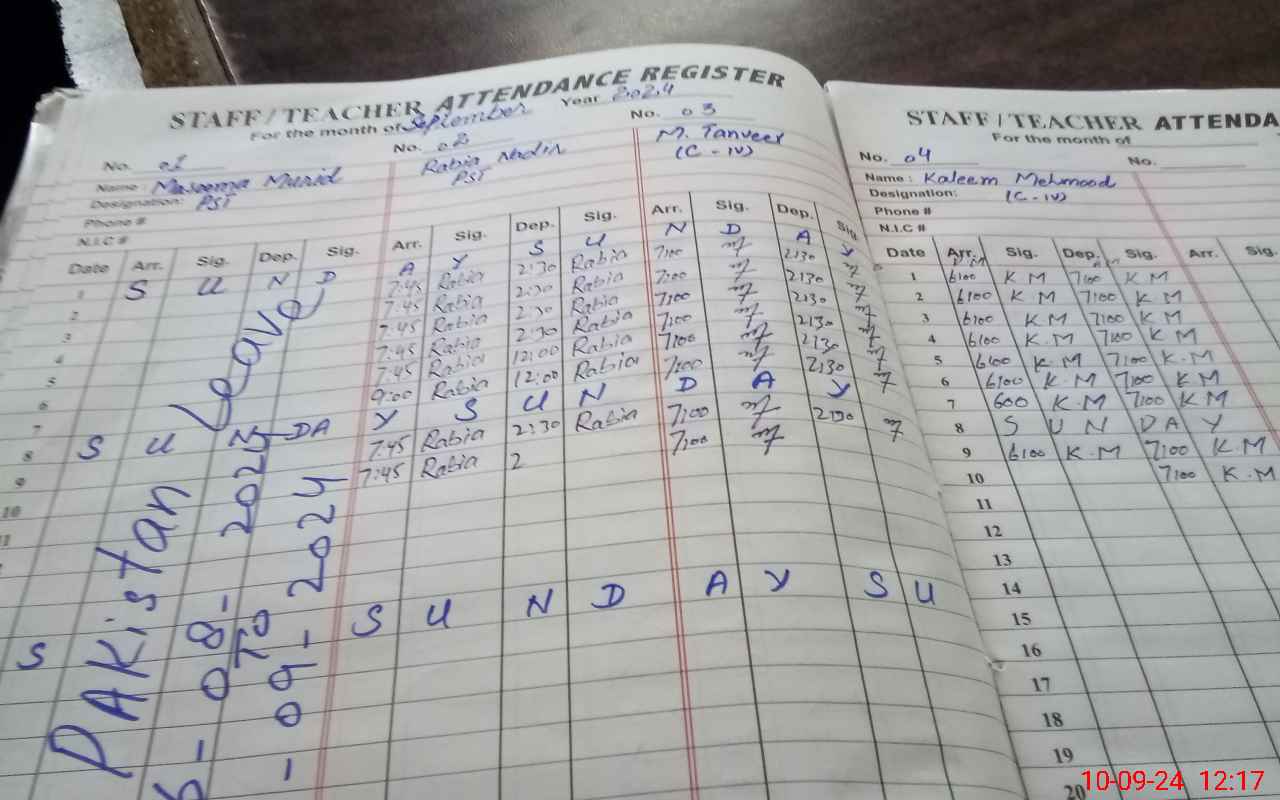 STAFF/TEACHER ATTENDANCE REGISTER
For the month of September Year 2024
No. 01 No. 02 No. 03
Name: Masooma Murid Rabia Nadir M. Tanveer
Designation: PST PST (C-IV)
Phone #
N.I.C #
Date Arr. Sig. Dep. Sig. Arr. Sig. Dep. Sig. Arr. Sig. Dep. Sig.
1 S U N D A Y S U N D A Y
2 7:45 Rabia 2:30 Rabia 7:00 2:30
3 7:45 Rabia 2:30 Rabia 7:00 2:30
4 7:45 Rabia 2:30 Rabia 7:00 2:30
5 7:45 Rabia 2:30 Rabia 7:00 2:30
6 7:45 Rabia 12:00 Rabia 7:00 2:30
7 9:00 Rabia 12:00 Rabia 7:00 2:30
8 S U N DA Y S U N D A Y
9 7:45 Rabia 2:30 Rabia 7:00 2:30
10 7:45 Rabia 2 7:00
11
S S U N D A Y S U
PAKistan Leave
08-2024
TO
-09-2024
STAFF/TEACHER ATTENDA
For the month of
No. 04 No.
Name: Kaleem Mehmood
Designation: (C-IV)
Phone #
N.I.C #
Date Arr. Sig. Dep. Sig. Arr. Sig.
1 6:00 K M 7:00 K M
2 6:00 K M 7:00 K M
3 6:00 K M 7:00 K M
4 6:00 K.M 7:00 K M
5 6:00 K.M 7:00 K.M
6 6:00 K.M 7:00 K M
7 600 K.M 7:00 K M
8 S U N D A Y
9 6:00 K.M 7:00 K.M
10 7:00 K.M
11
12
13
14
15
16
17
18
19
20
10-09-24 12:17